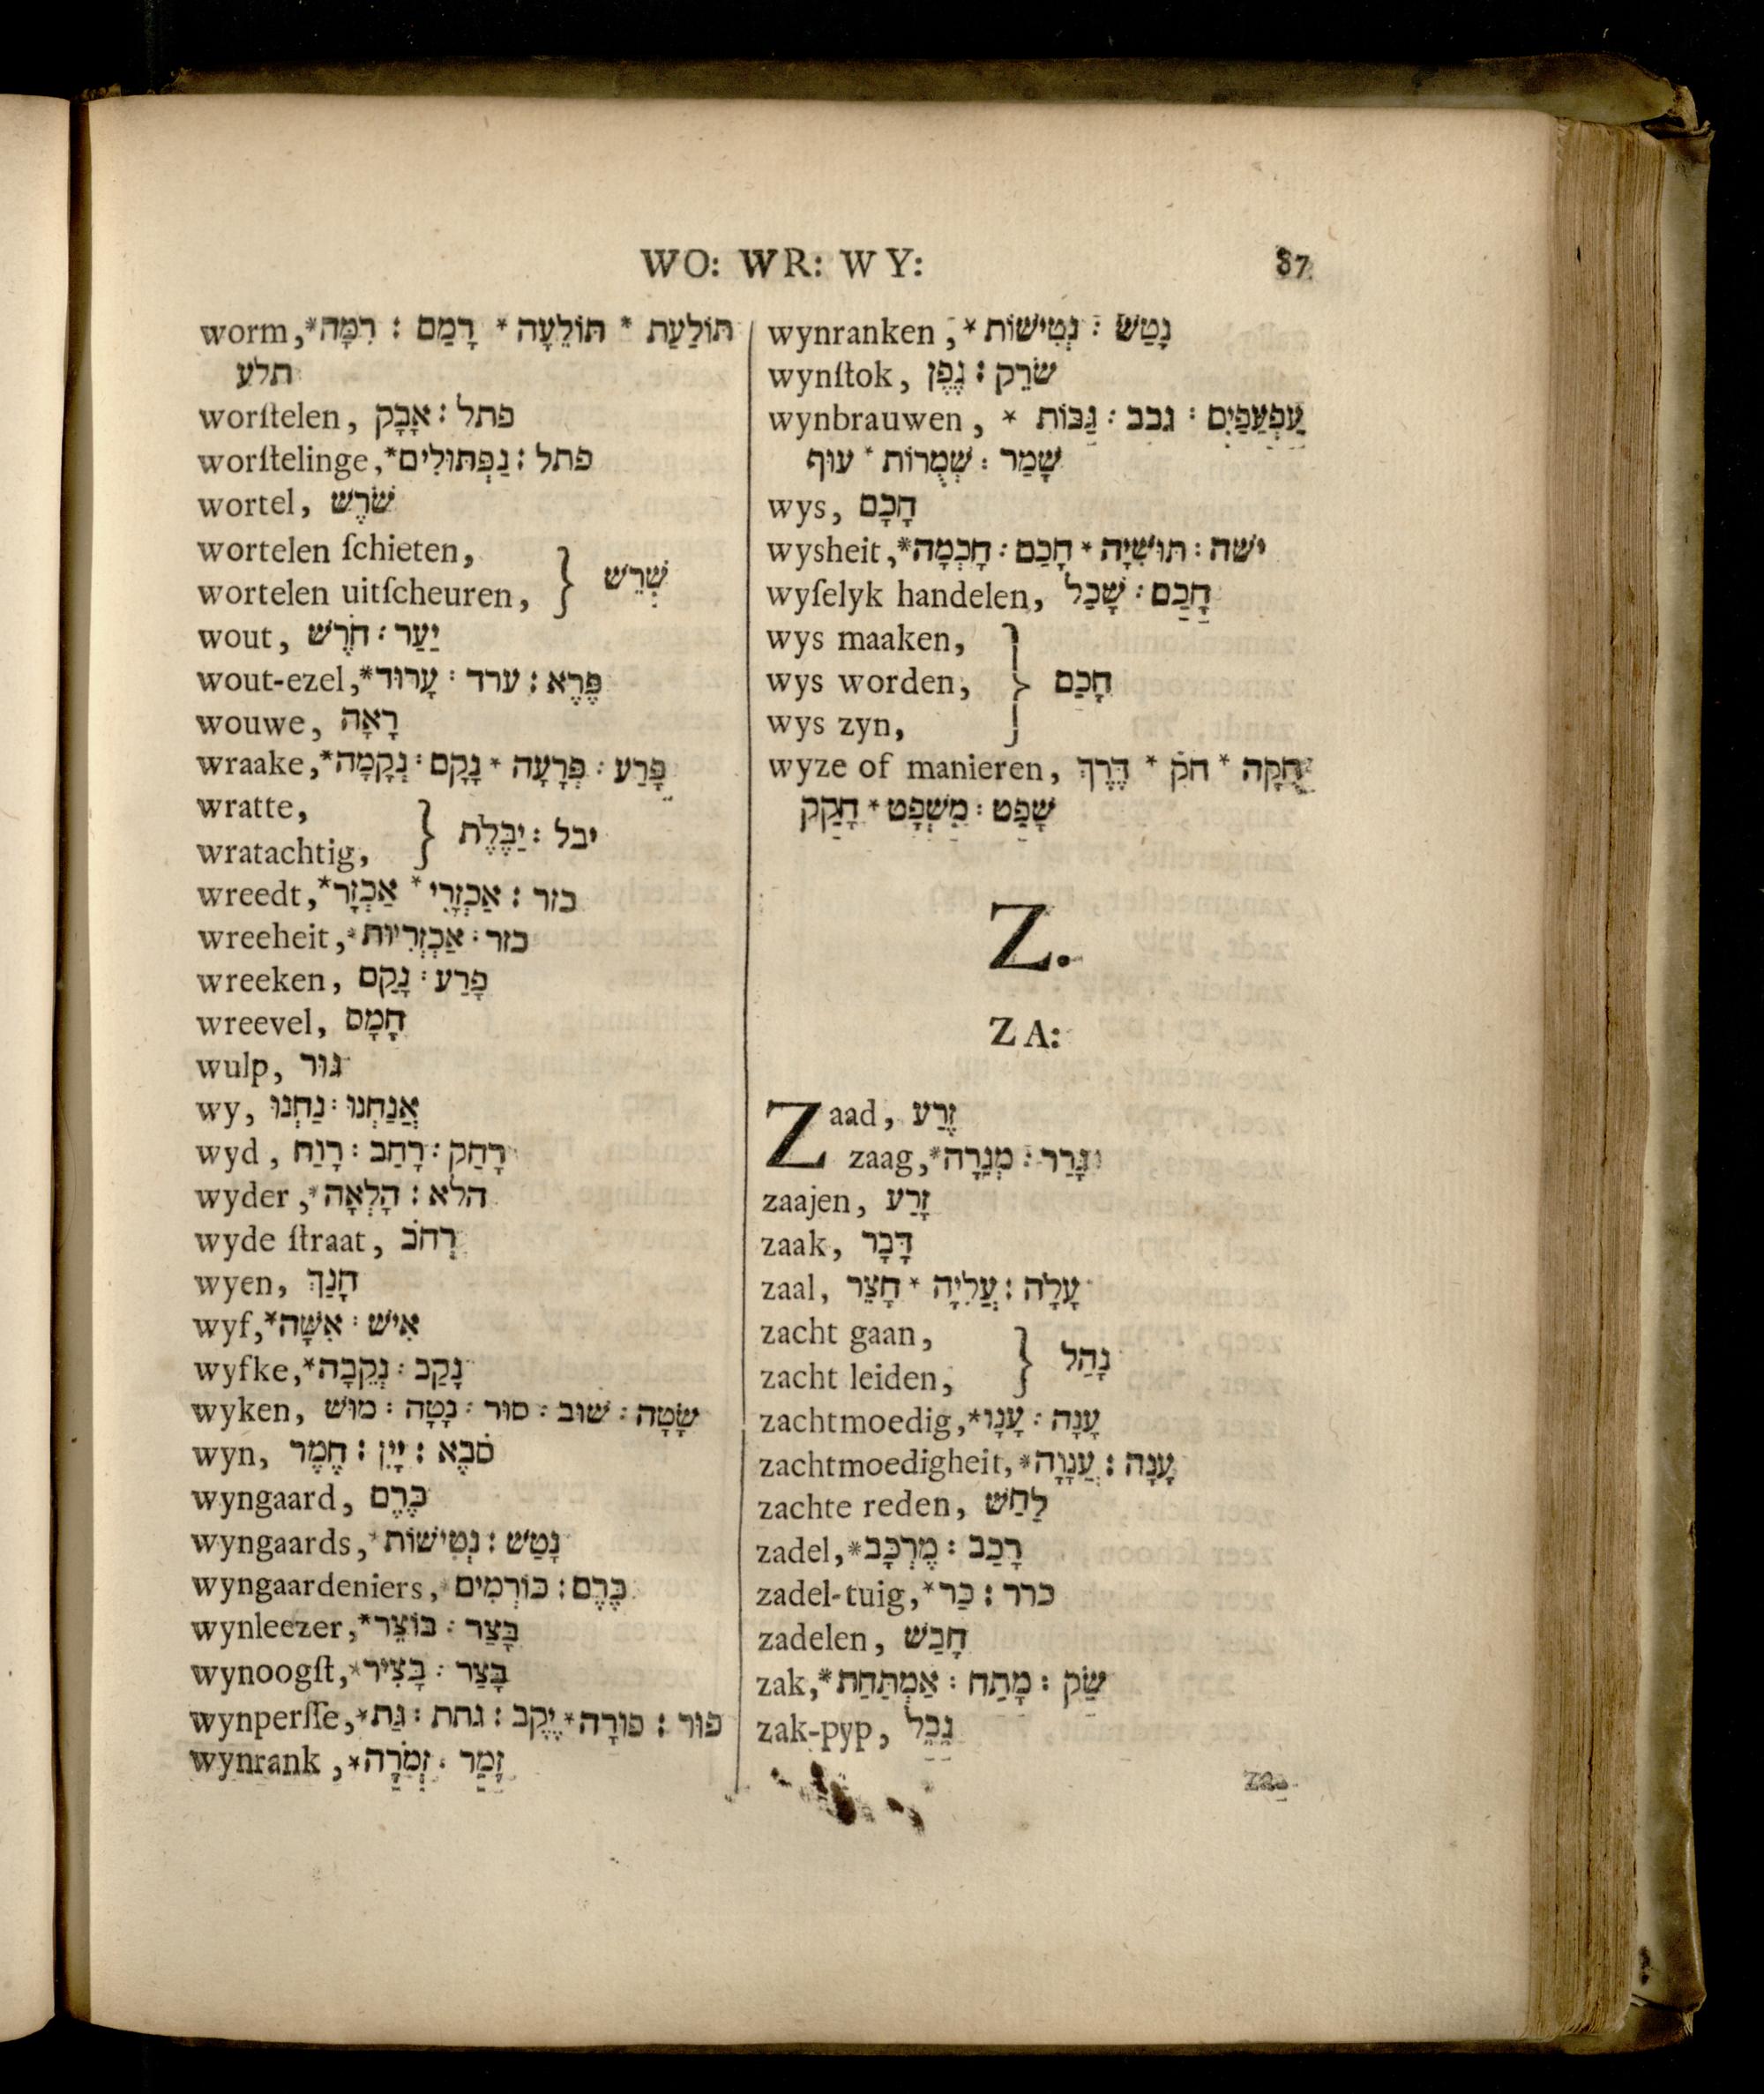 WO: WR: WY: 87
worm,*תּוֹלַעַת * תּוֹלֵעָה * רָמַם : רִמָּה
תלע
worſtelen, פתל : אָבָק
worſtelinge,*פתל : נַפְתּוּלִים
wortel, שֹׁרֶשׁ
wortelen ſchieten,
wortelen uitſcheuren, } שְׁרֵשׁ
wout, יַעַר : חֹרֶשׁ
wout-ezel,*פֶּרֶא : ערד : עָרוּד
wouwe, רָאָה
wraake,*פָּרַע : פְּרָעָה * נָקָם : נְקָמָה
wratte,
wratachtig, } יבל : יַבֶּלֶת
wreedt,*כזר : אַכְזָרִי * אַכְזָר
wreeheit,*כזר : אַכְזְרִיּוּת
wreeken, פָרַע : נָקַם
wreevel, חָמָס
wulp, גּוּר
wy, אֲנַחְנוּ : נַחְנוּ
wyd, רָחַק : רָחַב : רָוַח
wyder,*הלא : הָלְאָה
wyde ſtraat, רְחֹב
wyen, חָנַךְ
wyf,*אִישׁ : אִשָּׁה
wyfke,*נָקַב : נְקֵבָה
wyken, שָׂטָה : שׁוּב : סוּר : נָטָה : מוּשׁ
wyn, סֹבֶא : יָיִן : חֶמֶר
wyngaard, כֶּרֶם
wyngaards,*נָטַשׁ : נְטִישׁוֹת
wyngaardeniers,*כֶּרֶם : כּוֹרְמִים
wynleezer,*בָּצַר : בּוֹצֵר
wynoogſt,*בָּצַר : בָּצִיר
wynperſſe,*פּוּר : פּוּרָה * יֶקֶב : גתת : גַּת
wynrank,*זָמַר : זְמֹרָה
wynranken,*נָטַשׁ : נְטִישׁוֹת
wynſtok, שׂרֵק : גֶפֶן
wynbrauwen, * עַפְעַפַּיִם : גבב : גַּבּוֹת
שָׁמַר : שְׁמֻרוֹת * עוּף
wys, חָכָם
wysheit,*ישה : תּוּשִׁיָּה * חָכַם : חָכְמָה
wyſelyk handelen, חָכַם : שָׂכַל
wys maaken,
wys worden, } חָכַם
wys zyn,
wyze of manieren, חֻקָּה * חֹק * דֶּרֶךְ
שָׁפַט : מִשְׁפָּט * חָקַק
Z.
ZA:
Zaad, זֶרַע
zaag,*גָּרַר : מְגֵרָה
zaajen, זָרַע
zaak, דָּבָר
zaal, עָלָה : עֲלִיָּה * חָצֵר
zacht gaan,
zacht leiden, } נָהַל
zachtmoedig,*עָנָה : עָנָו
zachtmoedigheit,*עָנָה : עֲנָוָה
zachte reden, לַחַשׁ
zadel,*רָכַב : מֶרְכָּב
zadel-tuig,*כרר : כַּר
zadelen, חָבַשׁ
zak,*שַׂק : מָתַח : אַמְתַּחַת
zak-pyp, נֵבֶל
za-